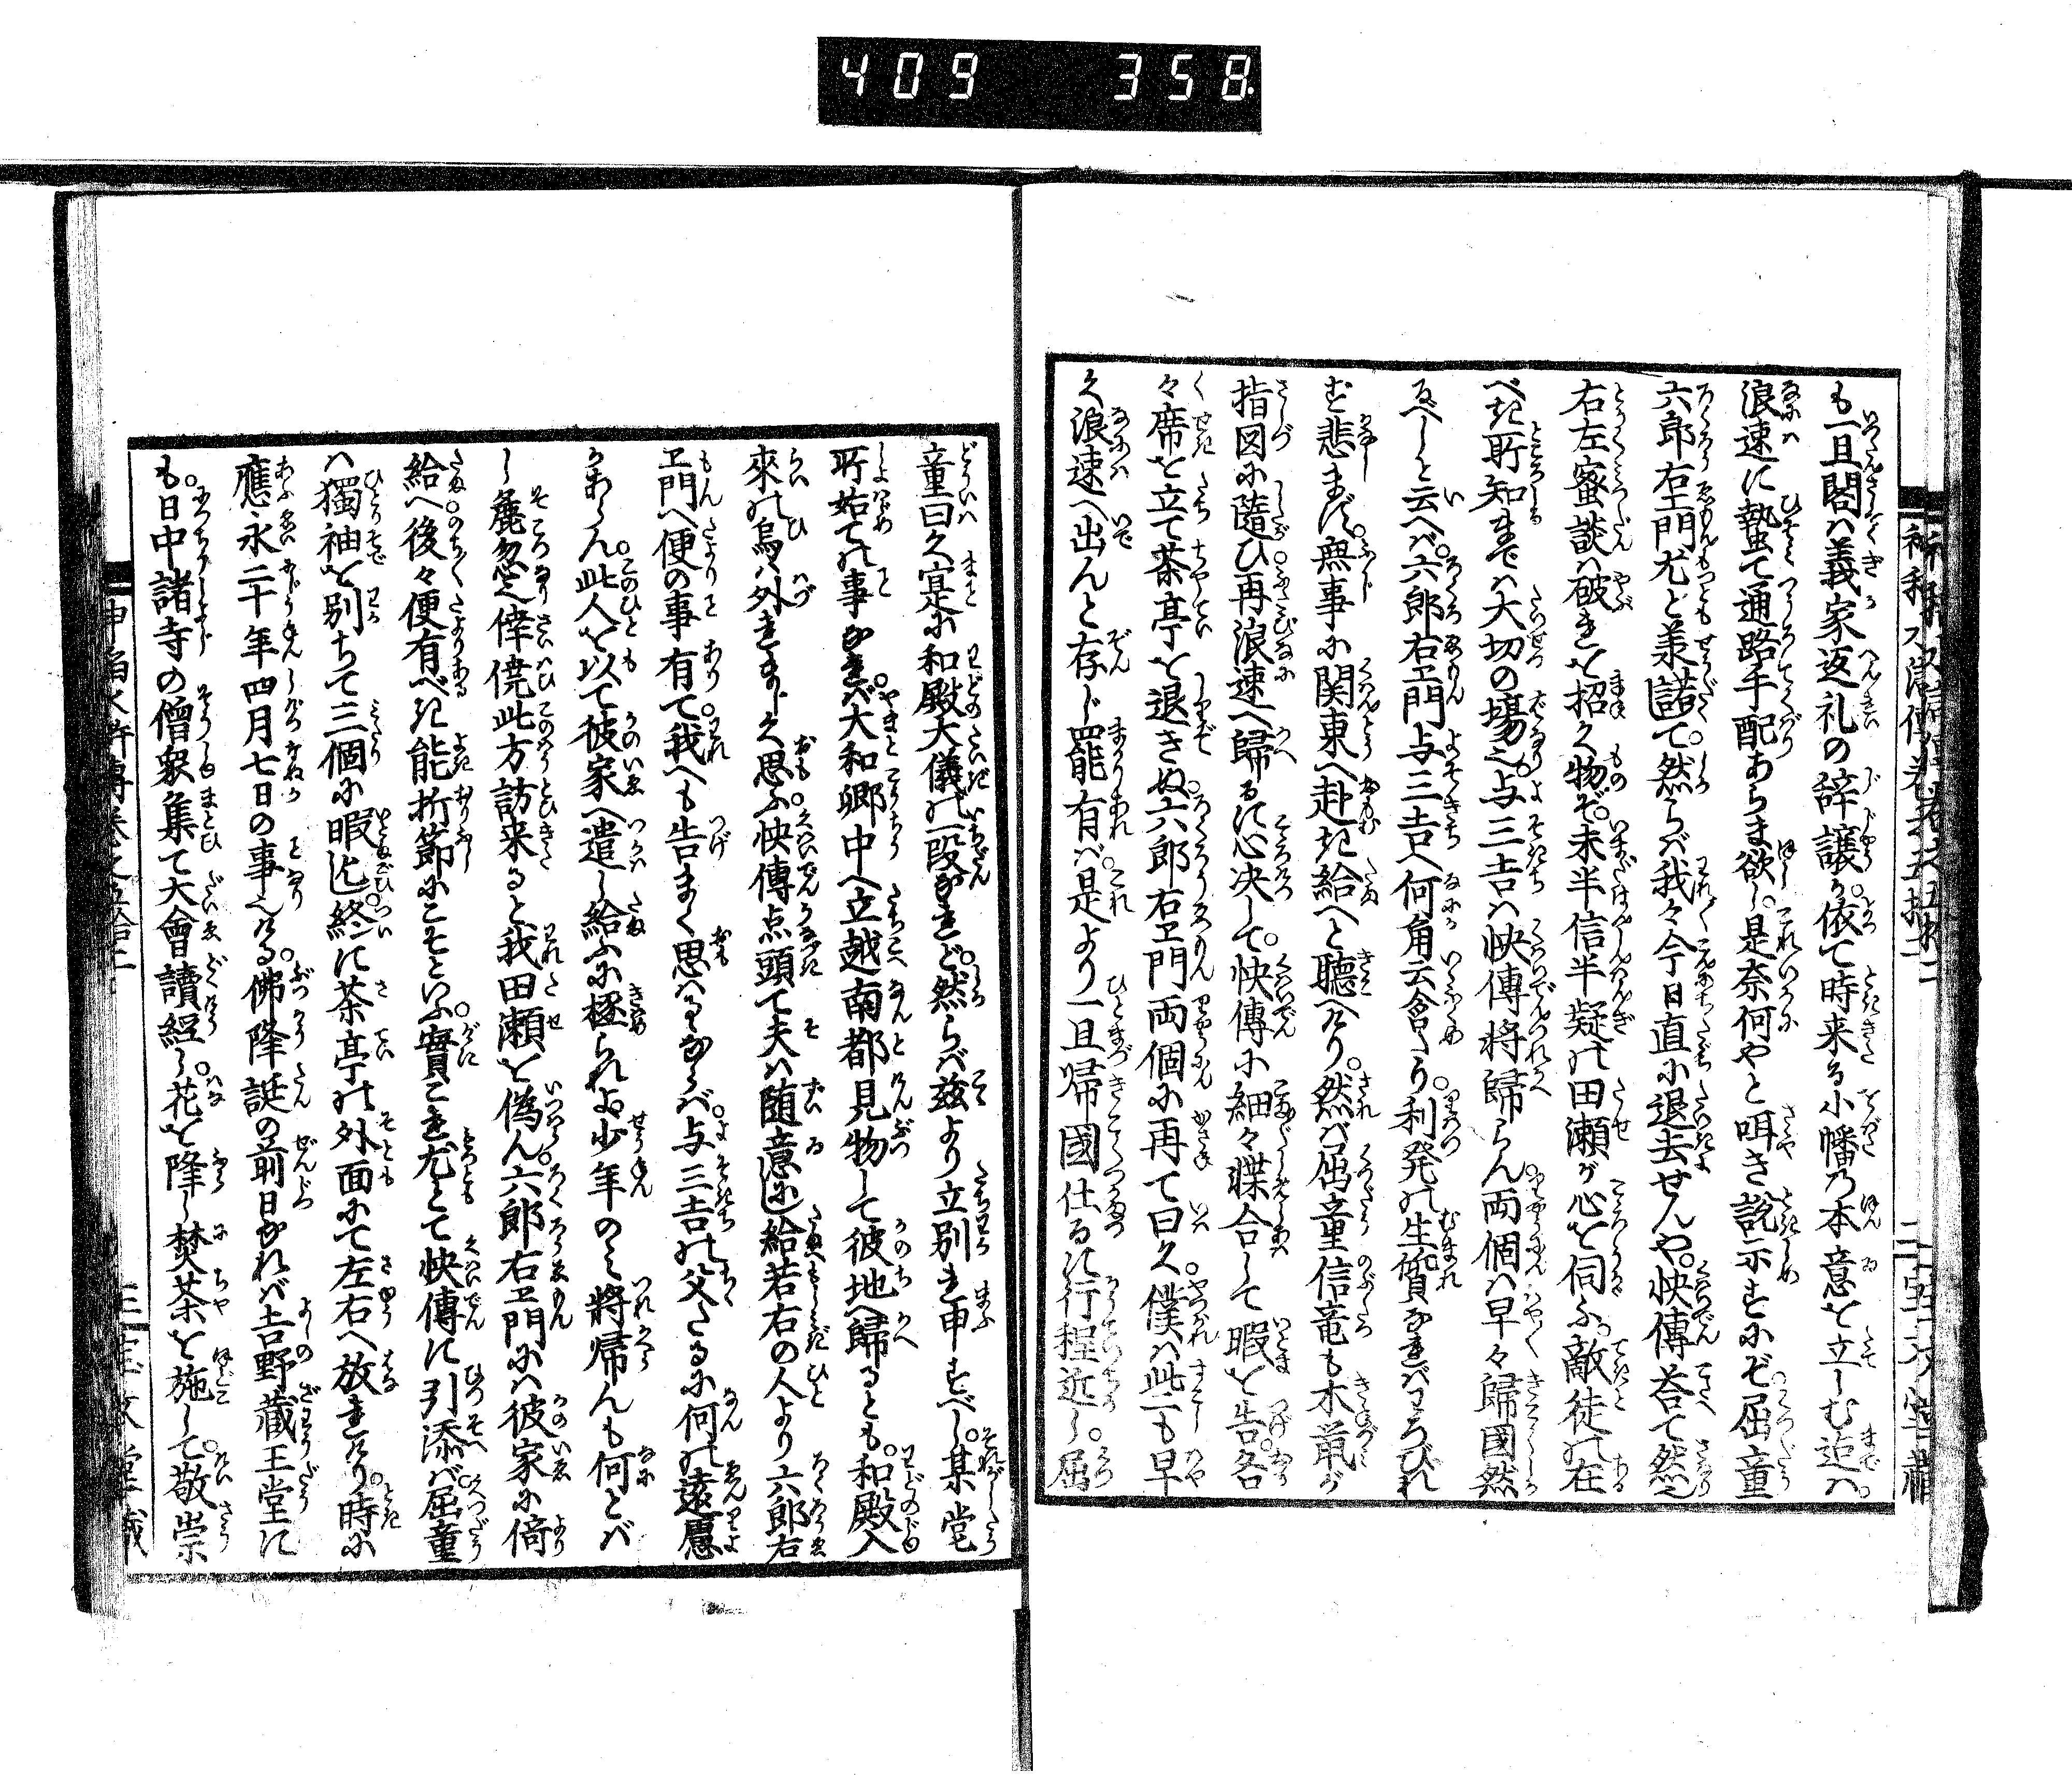 409 358
も一旦閣ハ義家返礼の辞譲か。依て時来る小幡乃本意を立しむ迠ハ。
浪速に蟄て通路手配あらま欲し。是奈何やと咡き説示すにぞ。屈童
六郎右エ門尤と羕諾て。然らバ我々今日直に退去せんや。快傳荅て然也
右左蜜談ハ破れを招く物ぞ。未半信半疑の田瀬が心を伺ふ。敵徒の在
べき所知までハ大切の場也。与三吉ハ快傳將歸らん。両個ハ早々歸國然
るべしと云へバ。六郎右エ門与三吉へ何角云含たり。利発の生質なれバわろびれ
ず悲まず。無事に関東へ赴き給へと聴へけり。然バ屈童信竜も木鼠が
指図に隨ひ再浪速へ歸るに心决して。快傳に細々喋合して暇を告。各
々席を立て茶亭を退きぬ。六郎右エ門両個に再て曰く。僕ハ些も早
く浪速へ出んと存じ罷有バ。是より一旦帰國仕るに行程近し。屈
童曰く寔に和殿大儀の一段なれど。然らバ茲より立別れ申すべし。某堂
所始ての事なれバ。大和郷中へ立越南都見物して彼地へ歸るとも。和殿入
來の爲ハ外れまじく思ふ。快傳点頭て夫ハ随意にし給へ。若右の人より六郎右
エ門へ便の事有て。我へも告まく思ハるゝならバ。与三吉の父たるに何の遠慮
かあらん。此人を以て彼家へ遣し給ふに極られよ。少年のミ將帰んも何とバ
し麁忽也。倖僥此方訪来ると我田瀬を偽ん。六郎右エ門にハ彼家に倚
給へ。後々便有べき能折節にこそといふ。實これ尤とて快傳に引添バ。屈童
ハ獨袖を別ちて三個に暇乞し。終に茶亭の外面にて左右へ放れけり。時に
應永二十年四月七日の事也ける。佛降誕の前日なれバ。吉野藏王堂に
も。日中諸寺の僧衆集て大會讀經し。花を降し焚茶を施して。敬崇